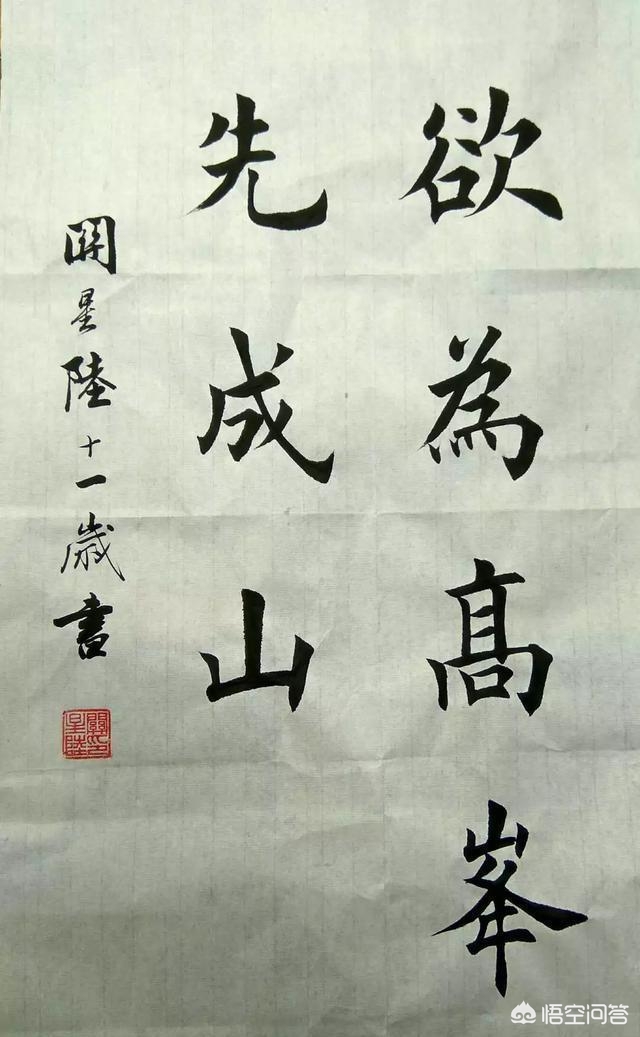 欲為髙峯
先成山
関星陸十一歲書
關印
星陸
悟空问答